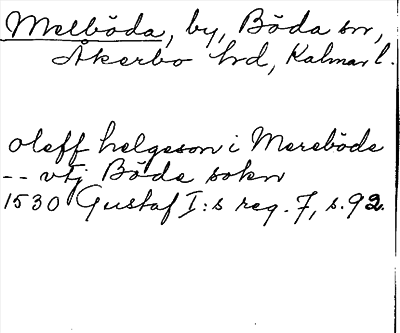 Melböda, by, Böda sn,
Åkerbo hd, Kalmar l.
oleff helgeson i Mereböde
-- vtj Böde sokn
1530 Gustaf I:s reg. 7, s. 92.